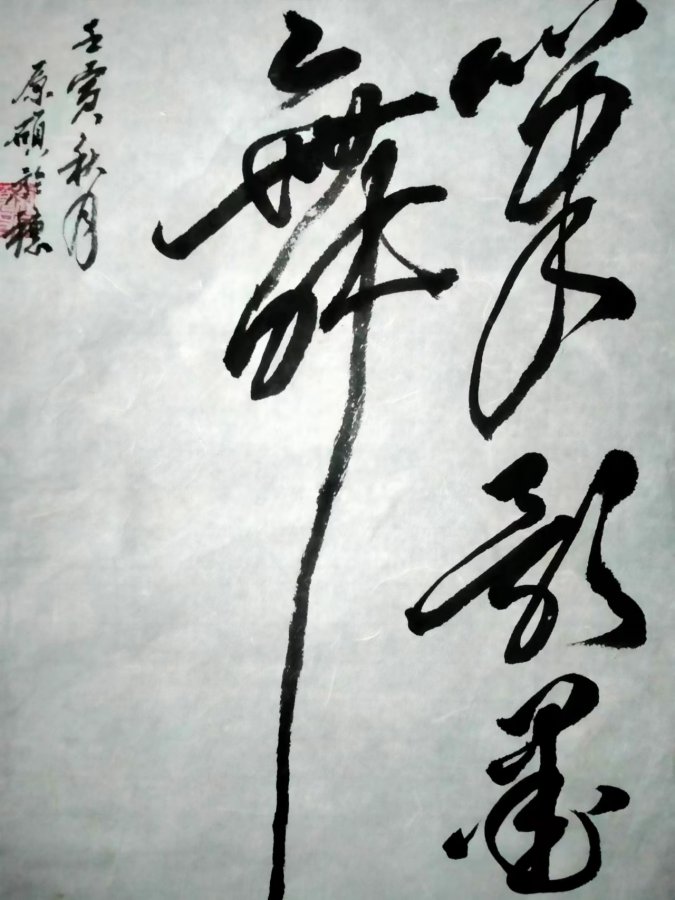 笔歌墨
舞
壬寅秋月
原硕於穗